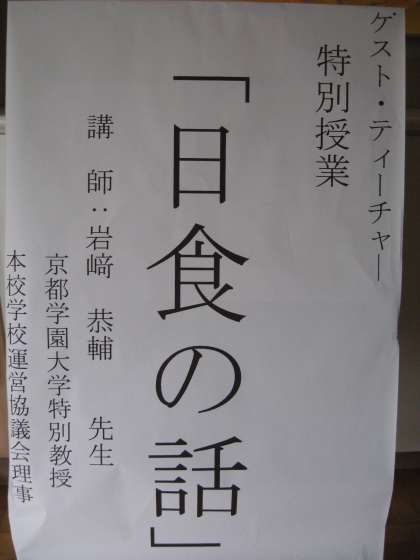 ゲスト・ティーチャー
特別授業
「日食の話」
講 師：岩﨑 恭輔 先生
京都学園大学特別教授
本校学校運営協議会理事